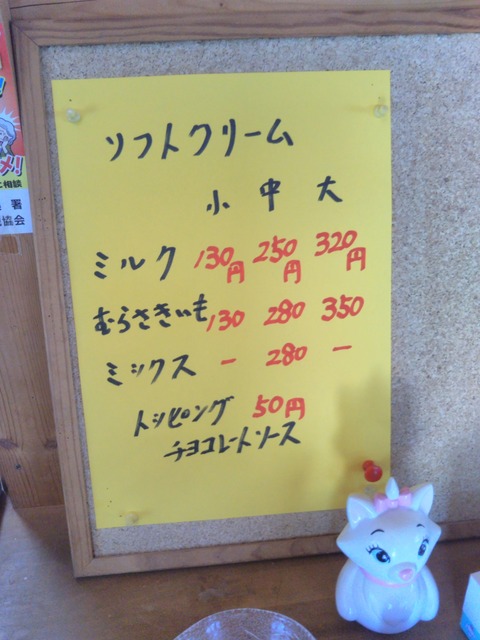 ソフトクリーム
小 中 大
ミルク 130円 250円 320円
むらさきいも 130 280 350
ミックス － 280 －
トッピング 50円
チョコレートソース
メ!
に相談
署
協会